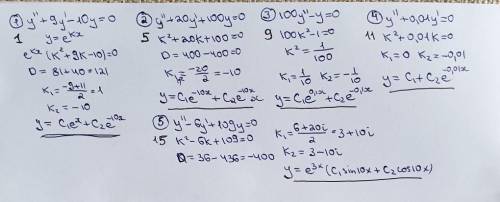 ① y''+9y'-10y=0
1 y=e^kx
e^kx(k²+9k-10)=0
D=81+40=121
k₁=(-9+11)/2=1
k₂=-10
y=C₁e^x+C₂e^-10x
② y''+20y'+100y=0
5 k²+20k+100=0
D=400-400=0
k₁=-20/2=-10
y=C₁e^-10x+C₂e^-10x x
③ 100y''-y=0
9 100k²-1=0
k²=1/100
k₁=1/10 k₂=-1/10
y=C₁e^0,1x+C₂e^-0,1x
④ y''+0,01y'=0
11 k²+0,01k=0
k₁=0 k₂=-0,01
y=C₁+C₂e^-0,01x
⑤ y''-6y'+109y=0
15 k²-6k+109=0
D=36-436=-400
k₁=(6+20i)/2=3+10i
k₂=3-10i
y=e^3x(C₁sin10x+C₂cos10x)